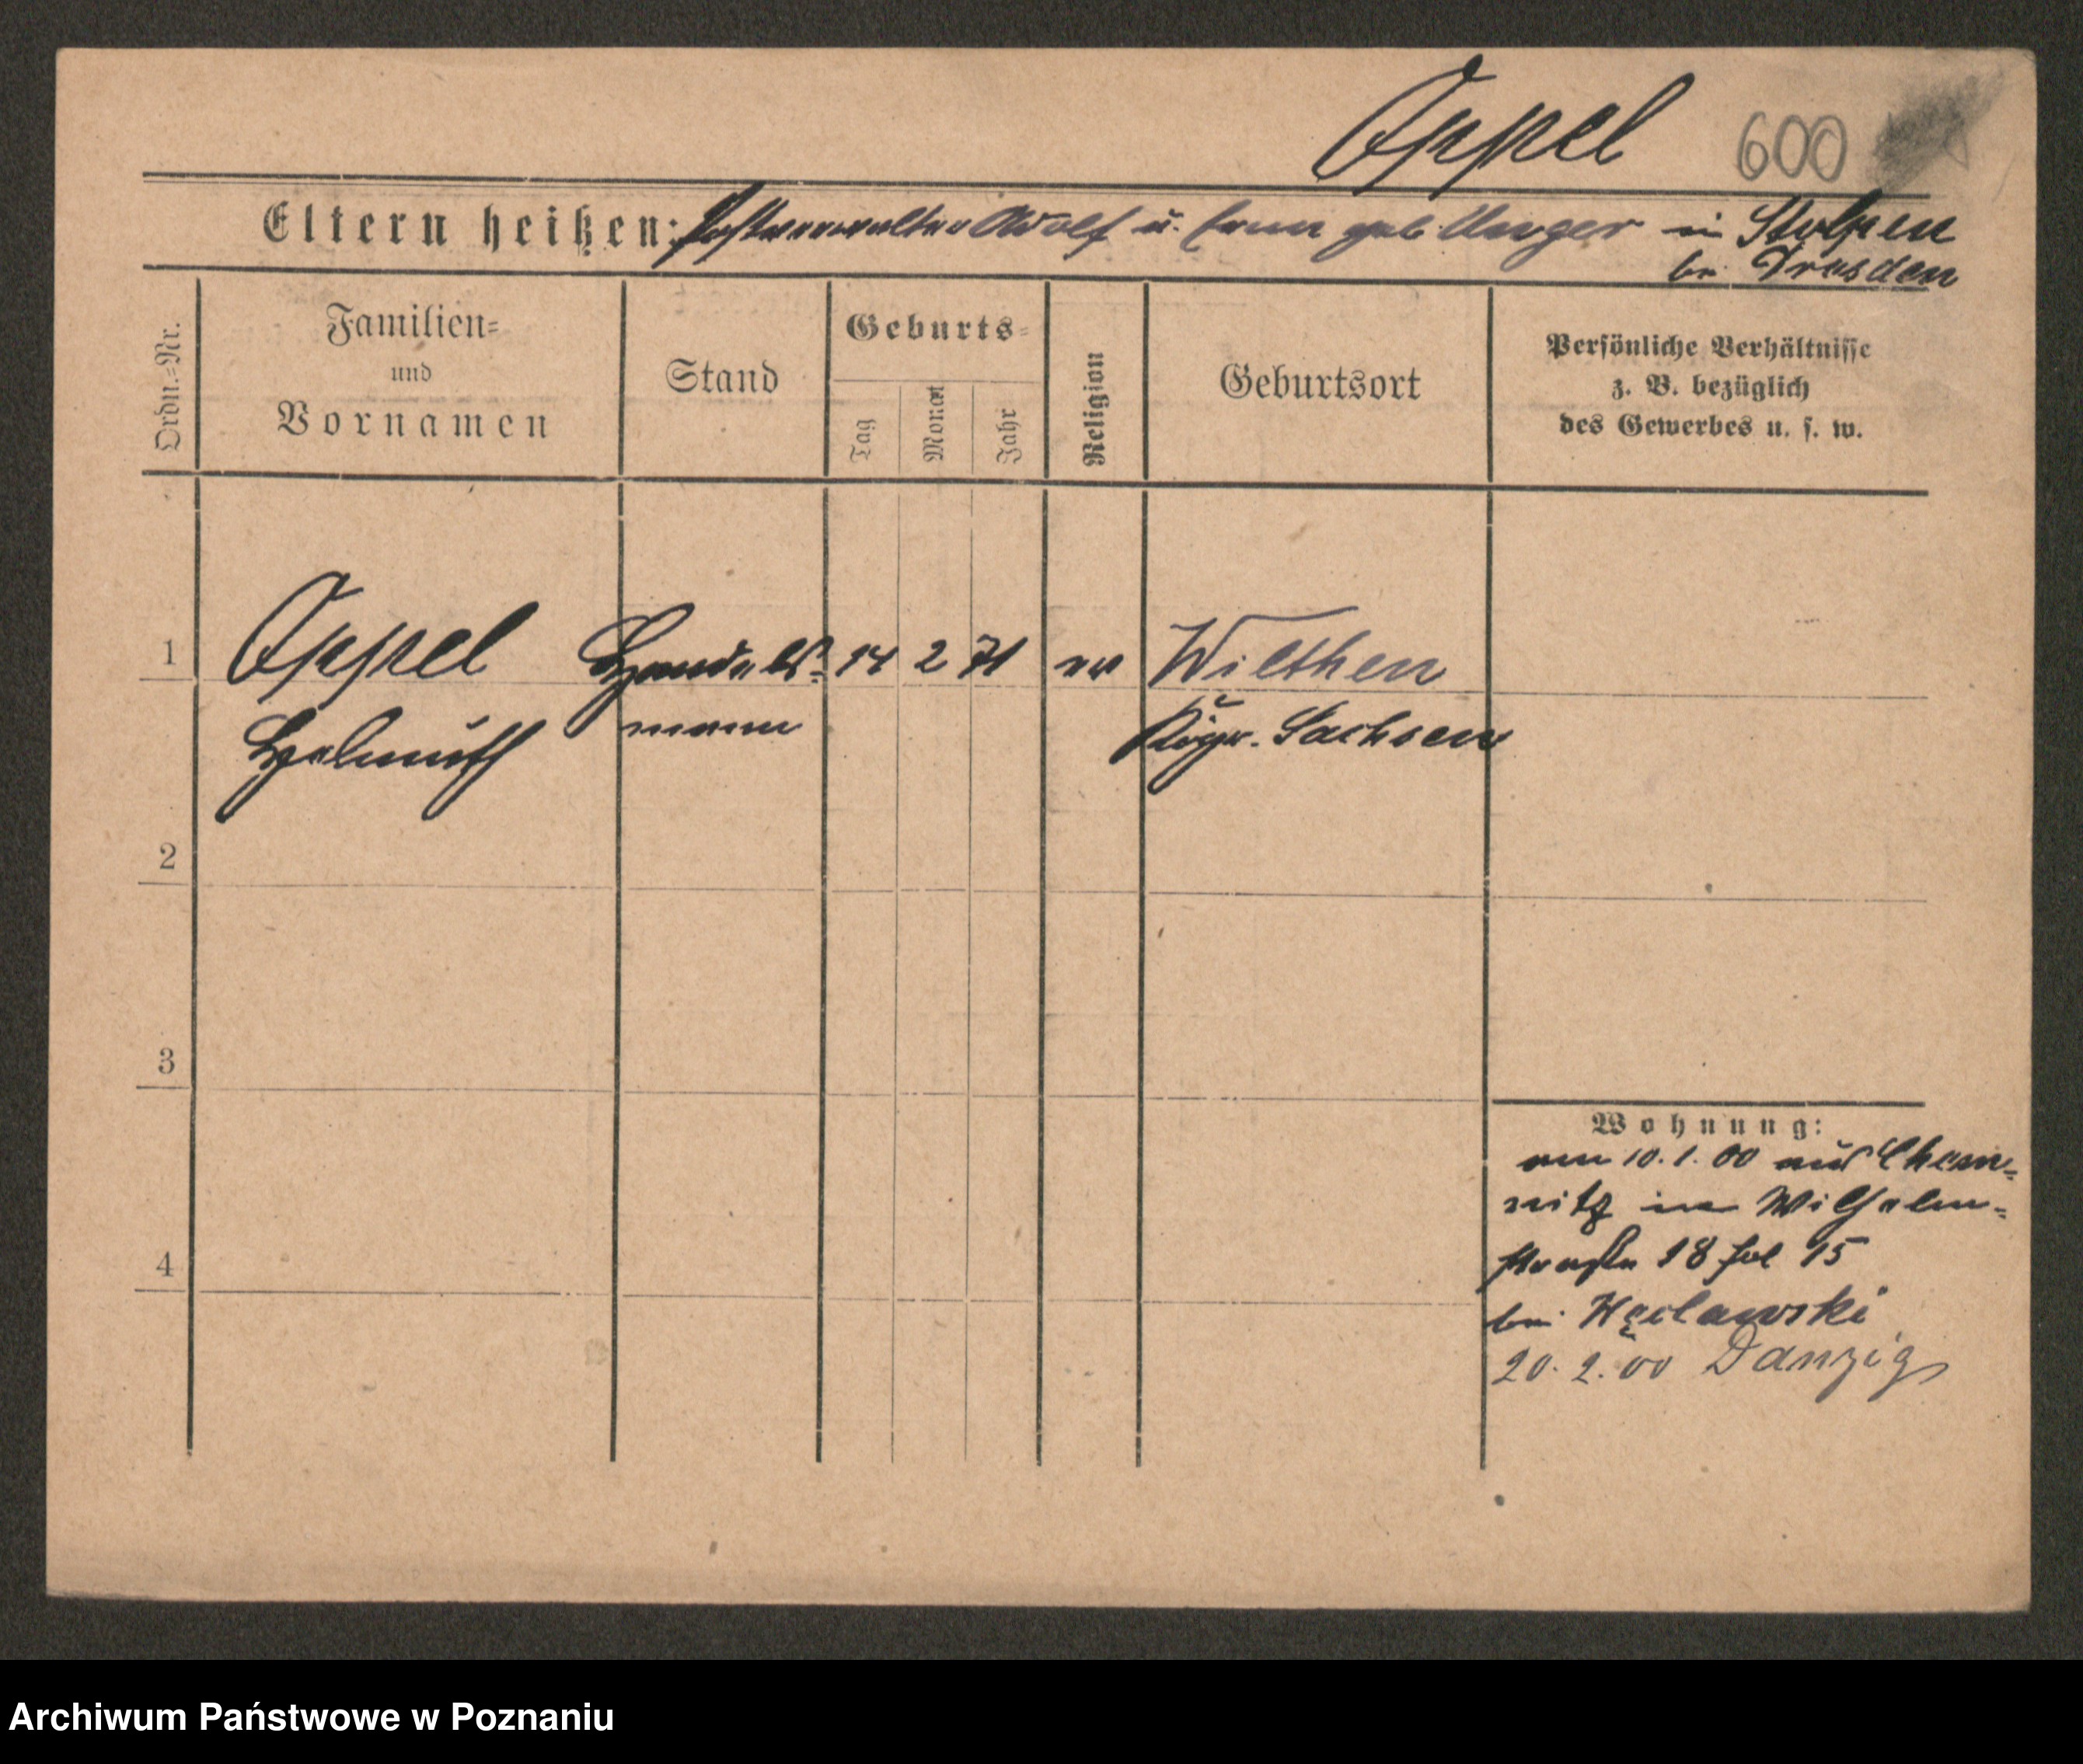 Appel 600
Eltern heißen: Postverwalter Adolf u. geb. Unger in Stolpen
bei Dresden
Ordn.=Nr.
Familien=
und
Vornamen
Stand
Geburts=
Tag
Monat
Jahr
Religion
Geburtsort
Persönliche Verhältnisse
z. B. bezüglich
des Gewerbes u. s. w.
1 Appel Handels= 14 2 71 ev Wilthen
Helmuth mann Kögr. Sachsen
2
3
4
Wohnung:
am 10.1.00 aus Chem=
nitz in Wilhelm=
straße 18 Hof 15
bei Węclawski
20.2.00 Danzig
Archiwum Państwowe w Poznaniu